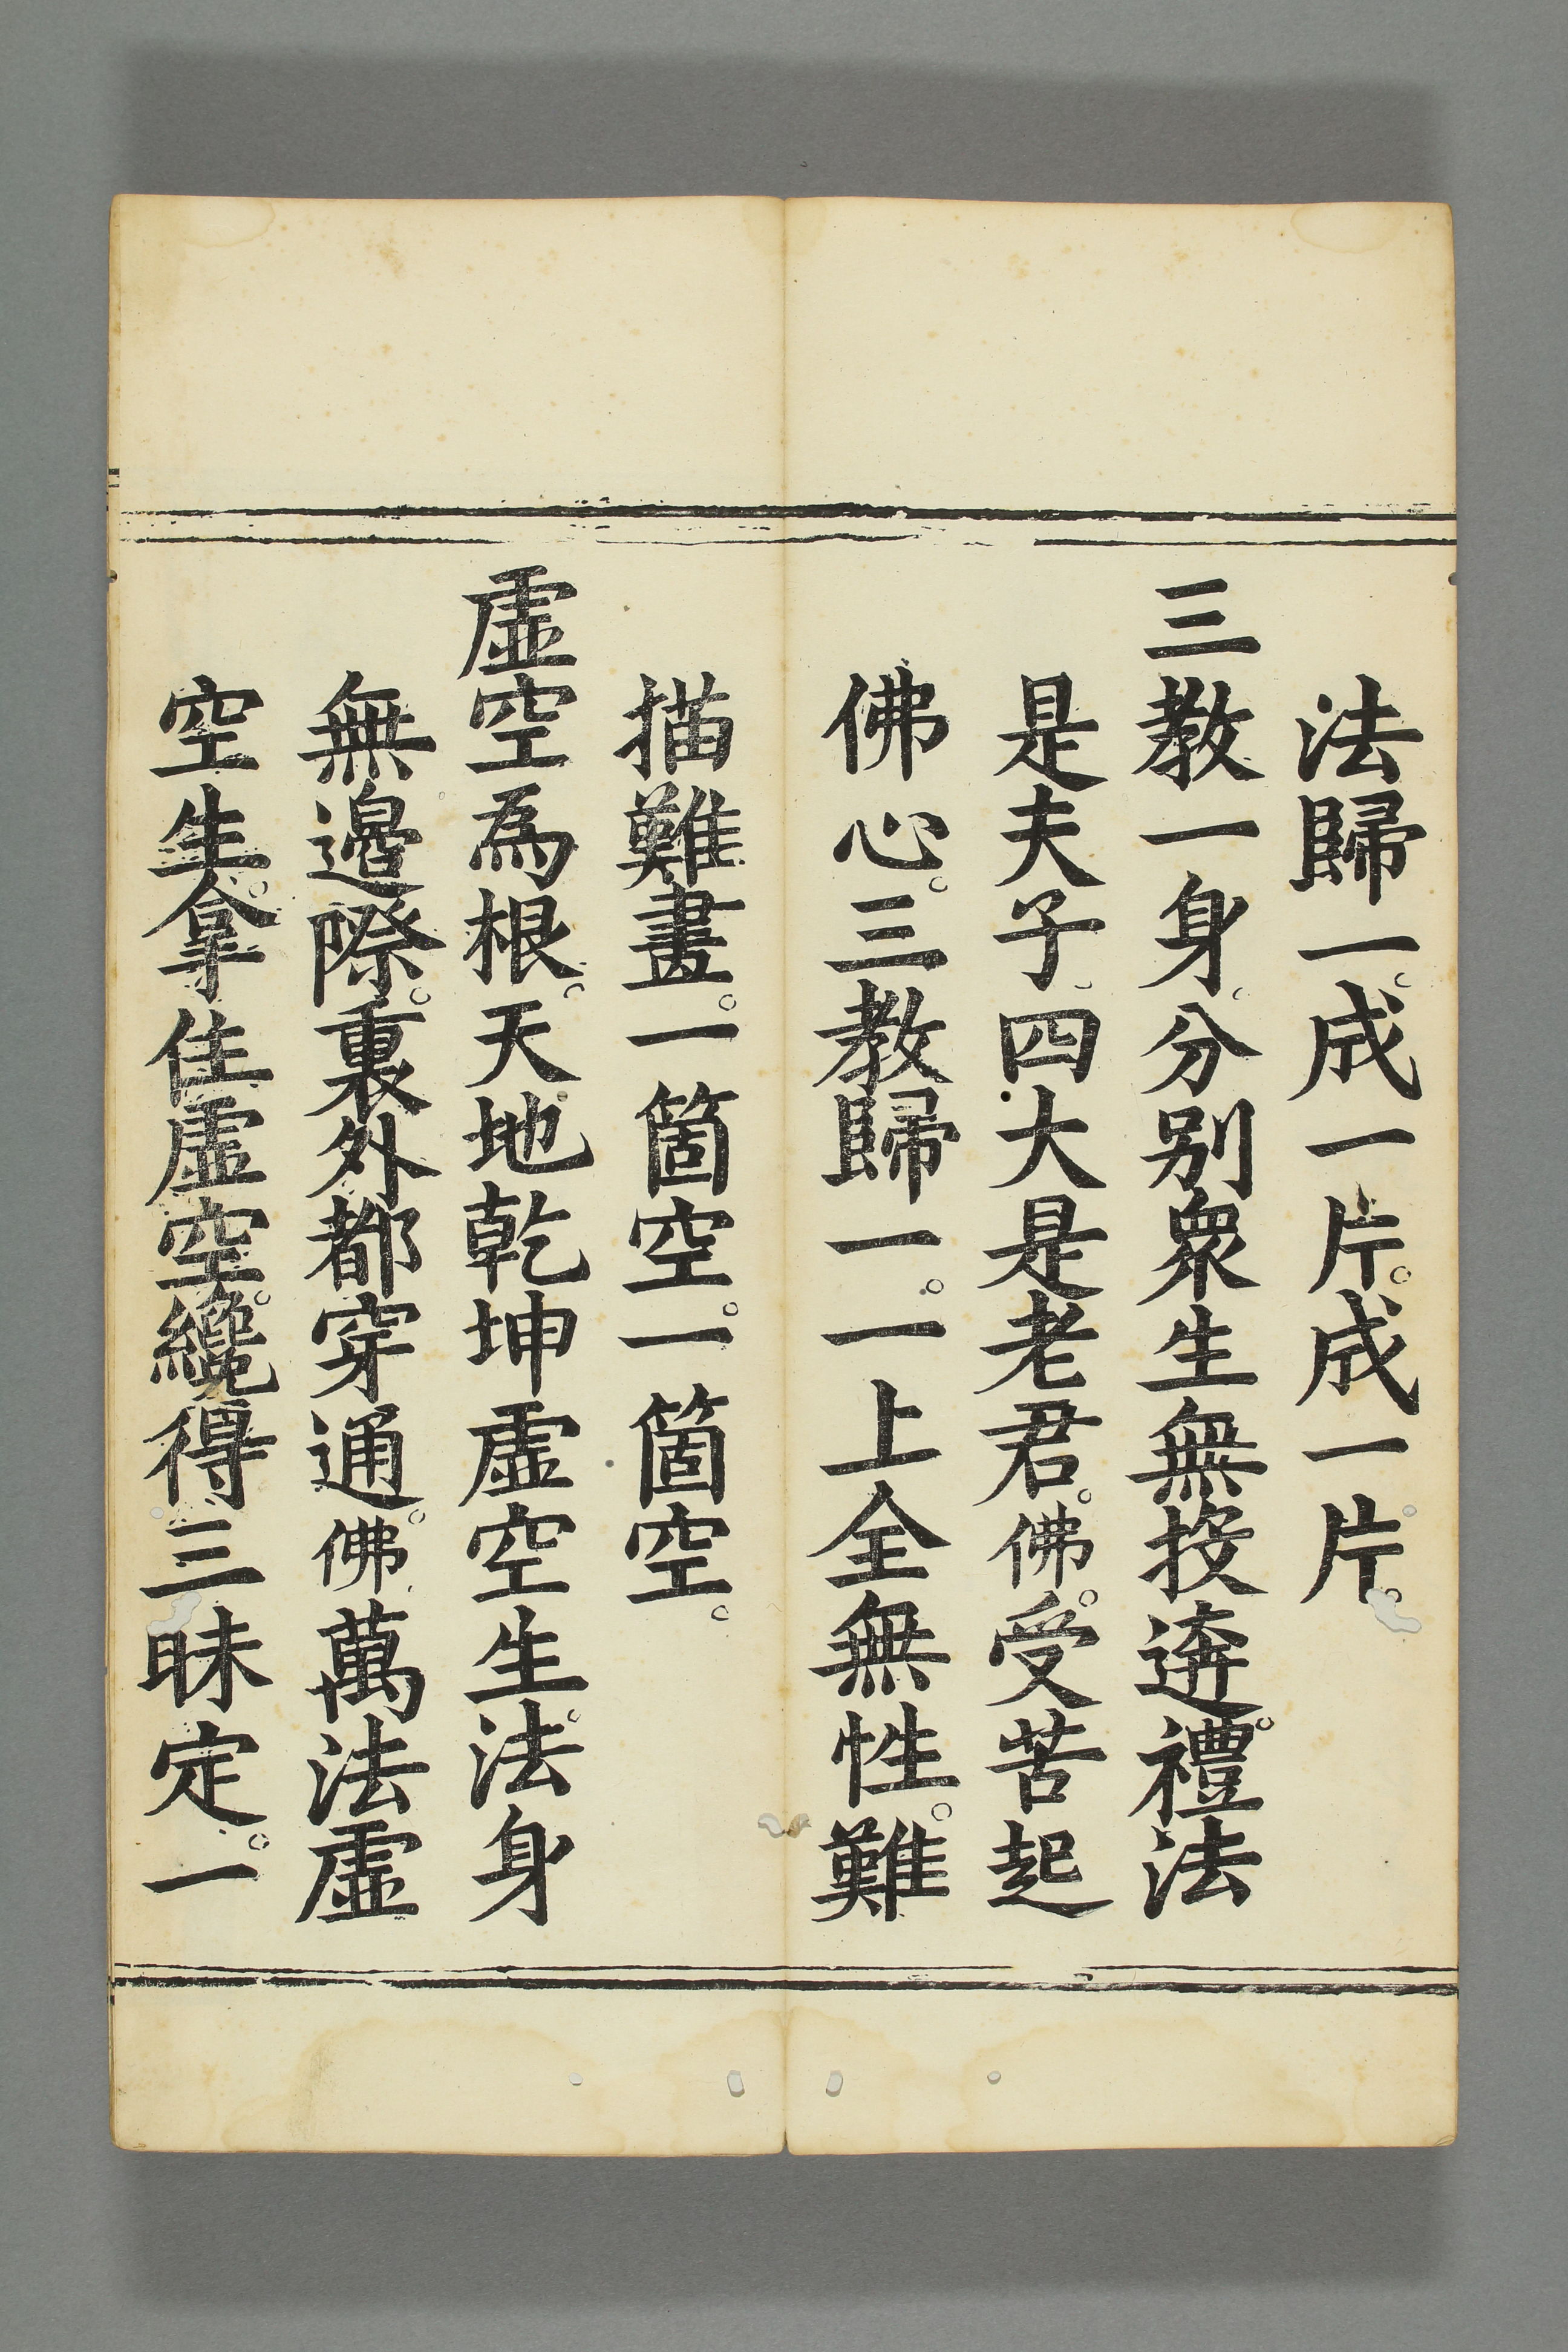 法歸一。成一片。成一片。
三教一身。分别衆生無投逩。禮法
是夫子。四大是老君。佛。受苦起
佛心。三教歸一。一上全無性。難
描難畫。一箇空。一箇空。
虛空為根。天地乾坤虛空生。法身
無邊際。裏外都穿通。佛萬法虛
空生。拿住虛空。纔得三昧定。一